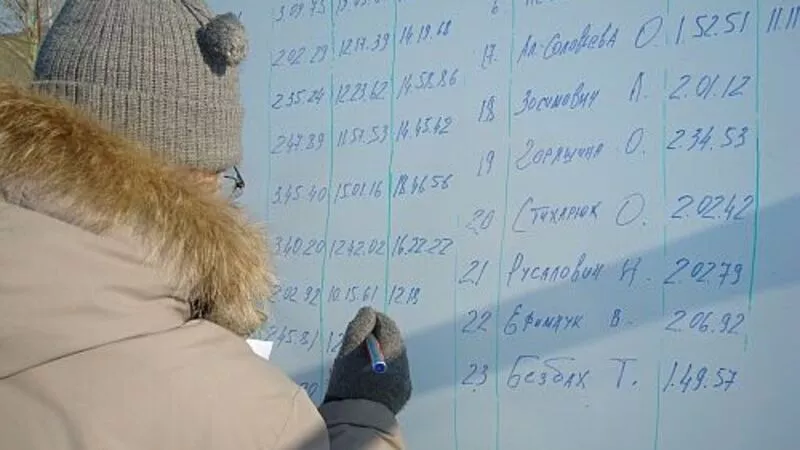 3.09.75
2.02.29 12.17.39 14.19.68
2.35.24 12.23.62 14.58.86
2.47.89 11.57.53 14.45.42
3.45.40 15.01.16 18.46.56
3.40.20 12.42.02 16.22.22
2.02.92 10.15.61 12.18
2.45.81
17. Ал-Соловьева О. 1.52.51 11.11
18 Зосимович Л. 2.01.12
19 О. 2.34.53
20 Стихарюк О. 2.02.42
21 Русалович Н. 2.02.79
22 Ефимчук В. 2.06.92
23 Безбах Т. 1.49.57